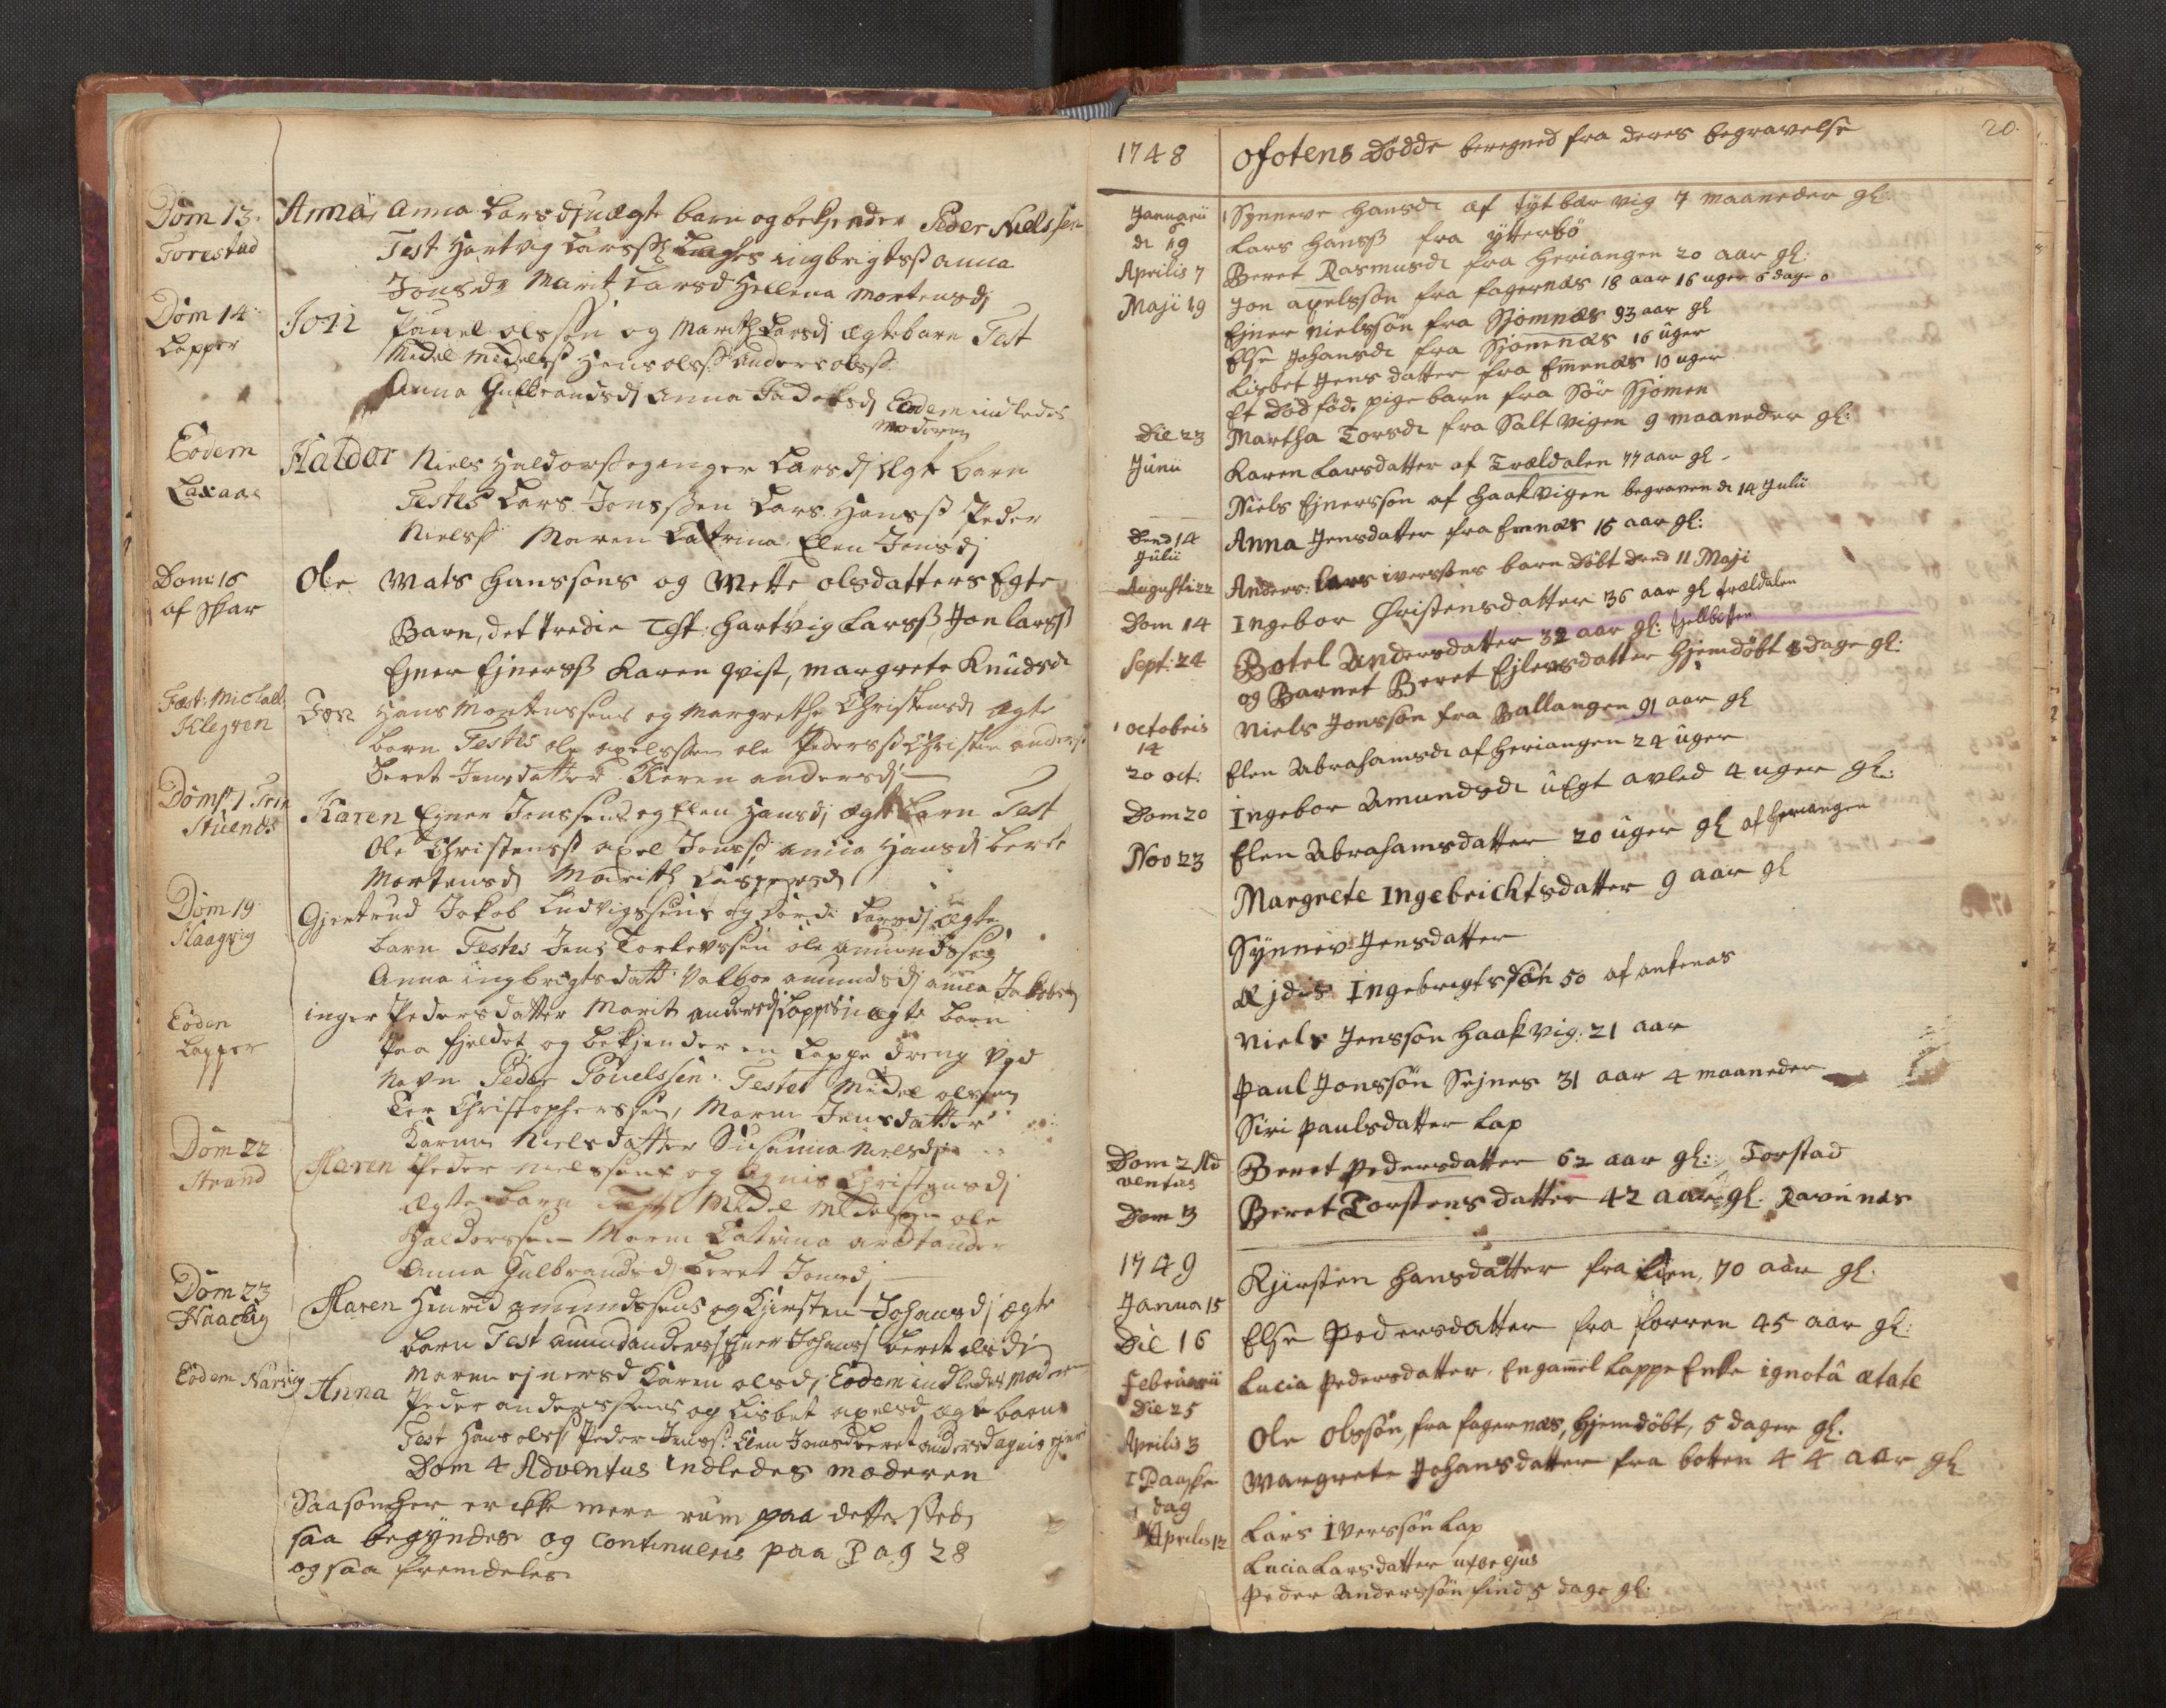 Dom 13. Anna, Anna Larsd: uægte barn og bekjender Peder Nielssen
Torestad Test Hartvig Larss: ingbrigtss anna
Jonsd: Marit Larsd Hellena Mortensd:
Dom 14 Jon Pouel olssen og Marith Larsd: ægte barn Test
Lapper Mickel Mickelss Hans olss anders olss
Anna Gulbrandsd: anna Eodem indledes
moderen
Eodem Haldor Niels Haldors og inger Larsd: ægte barn
Laxaae Testes Lars Jonssen Lars Hanss Peder
Nielss Maren Catrina Elen Jensd:
Dom: 16 Ole Mats Hanssøns og Mette olsdatters Egte
af Skar Barn, det tredie Test: Hartvig Larss, Jon larss
Ejner Ejnerss Karen qvist, margrete Knudsd:
Fæst: Michaël: Jon Hans Mortenssens og Margrethe Christensd: ægte
Klejven barn Testes ole axelssen ole Pederss Christen anderss
Beret Jensdatter Karen andersd:
Karen Ejner Jonssens og Elen Hansd: ægte barn Test
Ole Christenss axel Jonss, anna Hansd: beret
Mortensd: Marith
Dom 19 Gjertrud Jakob Ludvigssens og Larsd: ægte
Haagvig barn Testes Jens Torlevssen ole amundssen
Anna ingbrigtsdatt: Valbor amundsd: anna Jakobsd:
Eodem inger Pedersdatter Marit andersd: Lappes uægte barn
Lapper paa fjeldet og bekjender en Lappe dreng ved
Navn Peder Pouelssen. Testes Mickel olssen
Tor Christopherssen, Maren Jensdatter
Karen Nielsdatter Susanna Nielsd:
Dom 22 Maren Peder Nielssens og Christensd:
Strand ægte barn Test Mickel Mickelssen ole
Haldorssen Maren Catrina
Anna Gulbrandsd: beret Jonsd:
Dom 23 Maren Henrick amundssens og Kjersten Johansd: ægte
barn Test amund anderss Ejner Johanss beret olsd:
Maren ejnersd Karen olsd: Eodem indledes Moderen
Eodem Narvig Anna Peder anderssens og Lisbet axelsd ægte barn
Test Hans olss Peder Jenss: Elen Jonsd beret andersd
Dom 4 Adventus Indledes moderen
Saasom her er ikke mere rum paa dette sted,
saa begyndes og continueris paa Pag 28
og saa fremdeles
20.
1748 Ofotens Dødde beregned fra deres begravelse
Januarii Synneve Hansd: af tytbær vig 7 maaneder gl:
d: 19 Lars Hanss fra ytterbö
Aprilis 7 Beret Rasmusd: fra Heriangen 20 aar gl:
Maji 19 Jon axelssøn fra fagernæs 18 aar 16 uger 6 dage
Ejner Nielssøn fra Sjomnæs 93 aar gl
Else Johansd: fra Sjomnæs 16 uger
Lisbet Jens datter fra Emenæs 10 uger
Et død föd. pige barn fra Sör Sjomen
Die 23 Martha Torsd: fra Salt vigen 9 maaneder gl:
Junii Karen Larsdatter af Trældalen 77 aar gl
Niels Ejnerssøn af Haakvigen begraven d: 14 Julii
Dend 14 Julii Anna Jensdatter fra Emnæs 16 aar gl:
Augusti 22 Anders: Lars iverssøns barn döbt dend 11 Maji
Dom 14 Ingebor Christensdatter 36 aar gl trældalen
Sept: 24 Botel Andersdatter 32 aar gl:
og Barnet Beret Ejlersdatter Hjemdöbt 8 dage gl:
1 octobris Niels Jonssøn fra Ballangen 91 aar gl
14
20 oct: Elen Abrahamsd: af Heriangen 24 uger
Dom 20 Ingebor Amundsd: uEgt avled 4 uger gl:
Nov 23 Elen Abrahamsdatter 20 uger gl af Heriangen
Margrete Ingebrichtsdatter 9 aar gl
Synnev: Jensdatter
Ingebrigts 50 af
Niels Jenssøn Haakvig: 21 aar
Paul Jonssøn Sejnes 31 aar 4 maaneder
Siri paulsdatter Lap
Dom 2 Ad ventus Beret Pedersdatter 62 aar gl: Torstad
Dom 3 Beret Torstensdatter 42 aar gl. Ravnnæs
1749 Kjirsten Hansdatter fra Lien, 70 aar gl.
Janua 15 Else Pedersdatter fra forren 45 aar gl:
Die 16 Lucia Pedersdatter. En gamel Lappe Enke ignotâ ætate
Februarii
Die 25 Ole Olssøn, fra fagernæs, Hjemdöbt, 5 dager gl.
Aprilis 3 Margrete Johansdatter fra botten 44 aar gl
1 Paaske dag Lars Iverssøn Lap
Aprilis 12 Lucia Larsdatter uxor ejus
Peder Anderssøn find 5 dage gl: